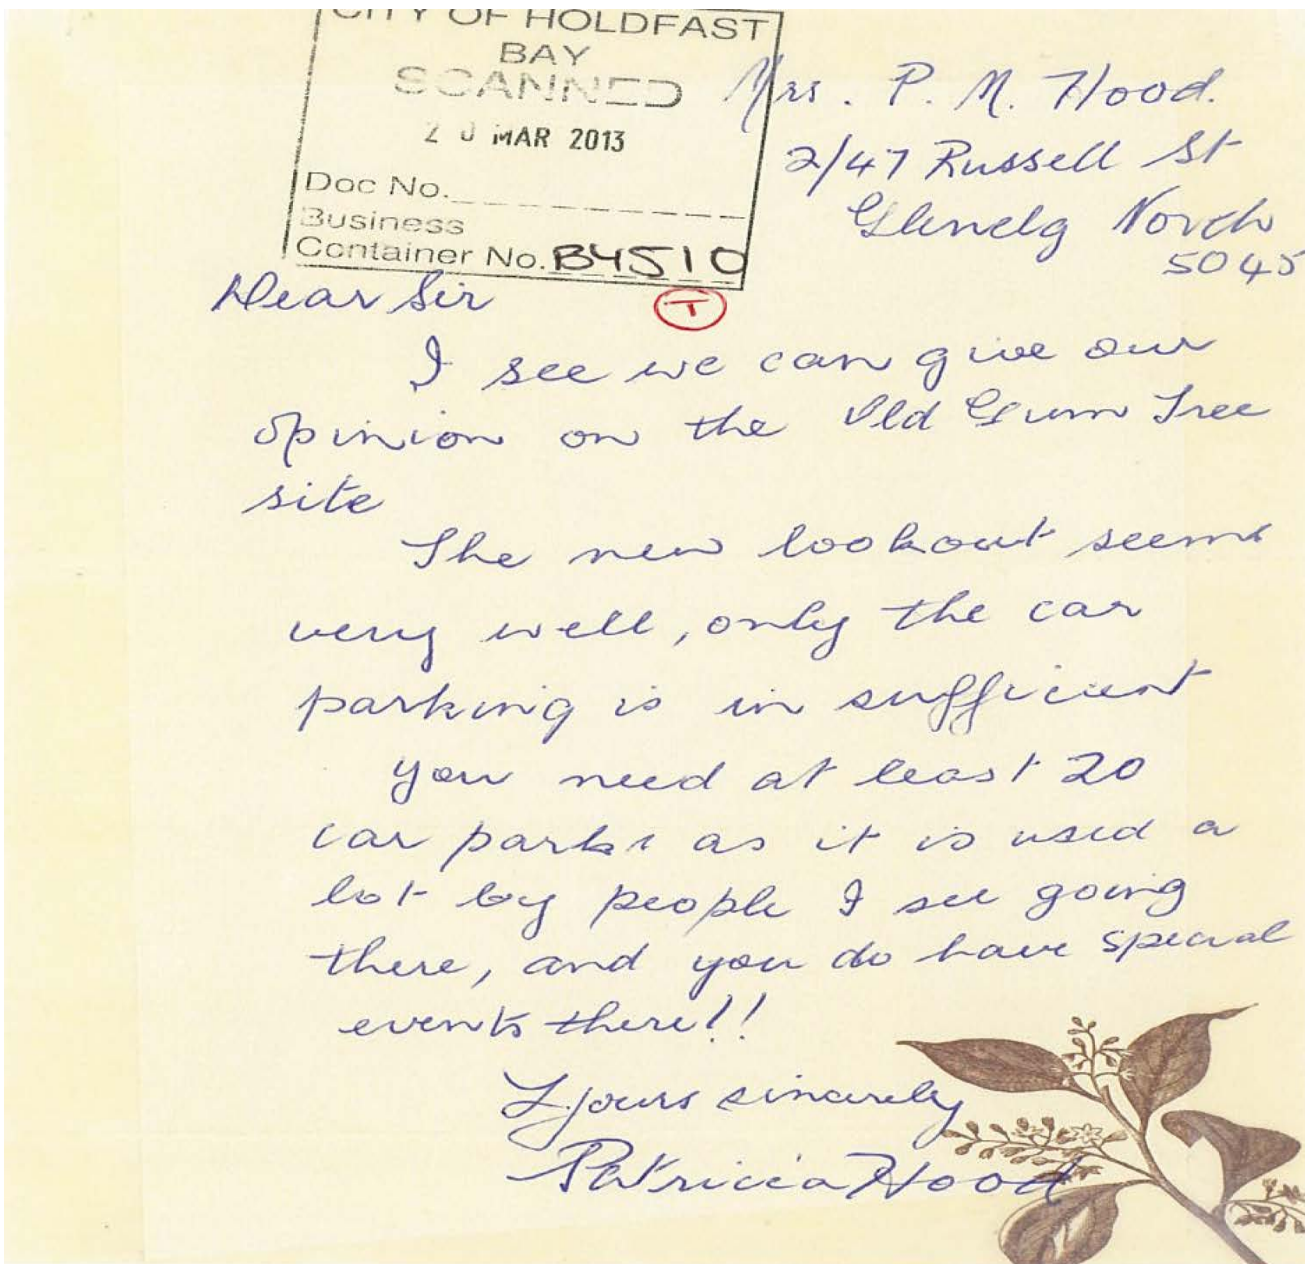 CITY OF HOLDFAST
BAY
SCANNED
20 MAR 2013
Doc No.
Business
Container No. B4510
Mrs. P. M. Hood.
2/47 Russell St
Glenelg North
5045
Dear Sir
T
I see we can give our
opinion on the Old Gum Tree
site
The new lookout seems
very well, only the car
parking is in sufficient
you need at least 20
car parks as it is used a
lot by people I see going
there, and you do have special
events there!!
Yours sincerely
Patricia Hood